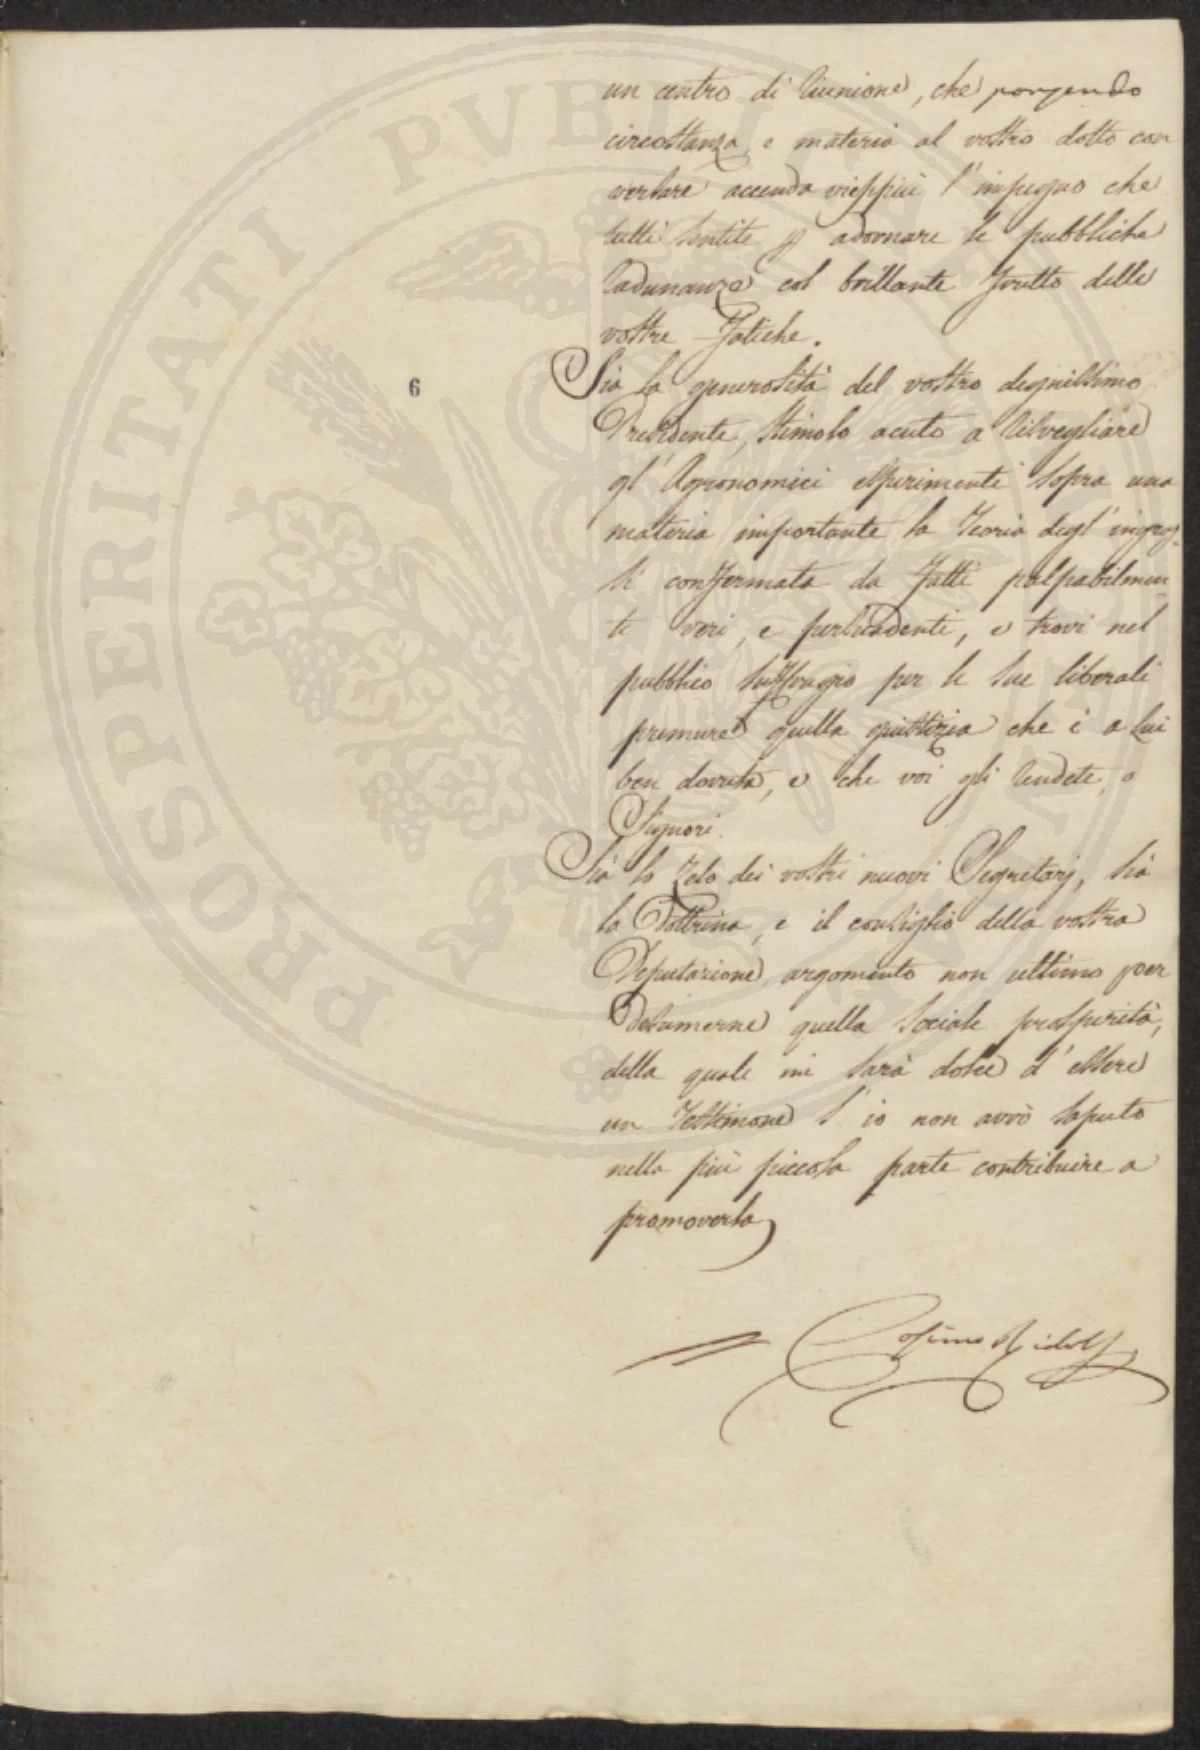 un centro di riunione, che porgendo
circostanza, e materia al vostro dotto con
versare accenda vieppiù l'impegno che
tutti sentite p adornare le pubbliche
radunanze col brillante frutto delle
vostre Fatiche.
Sia la generosità del vostro degnissimo
Presidente, stimolo acuto a risvegliare
gl' Agronomici esperimenti sopra una
materia importante la Teoria degl' ingras-
si confermata da fatti palpabilmen-
te veri, e persuadenti, e trovi nel
pubblico suffragio per le sue liberali
premure quella giustizia che è a Lui
ben dovuta, e che voi gli rendete, o
Signori.
Sia lo Zelo dei vostri nuovi Segretarj, sia
la Dottrina, e il consiglio della vostra
Deputazione argomento non ultimo per
desumerne quella sociale prosperità,
della quale mi sarà dolce d'essere
un Testimone s'io non avrò saputo
nella più piccola parte contribuire a
promoverla
Cosimo Ridolfi
6
PROSPERITATI PVBLICAE